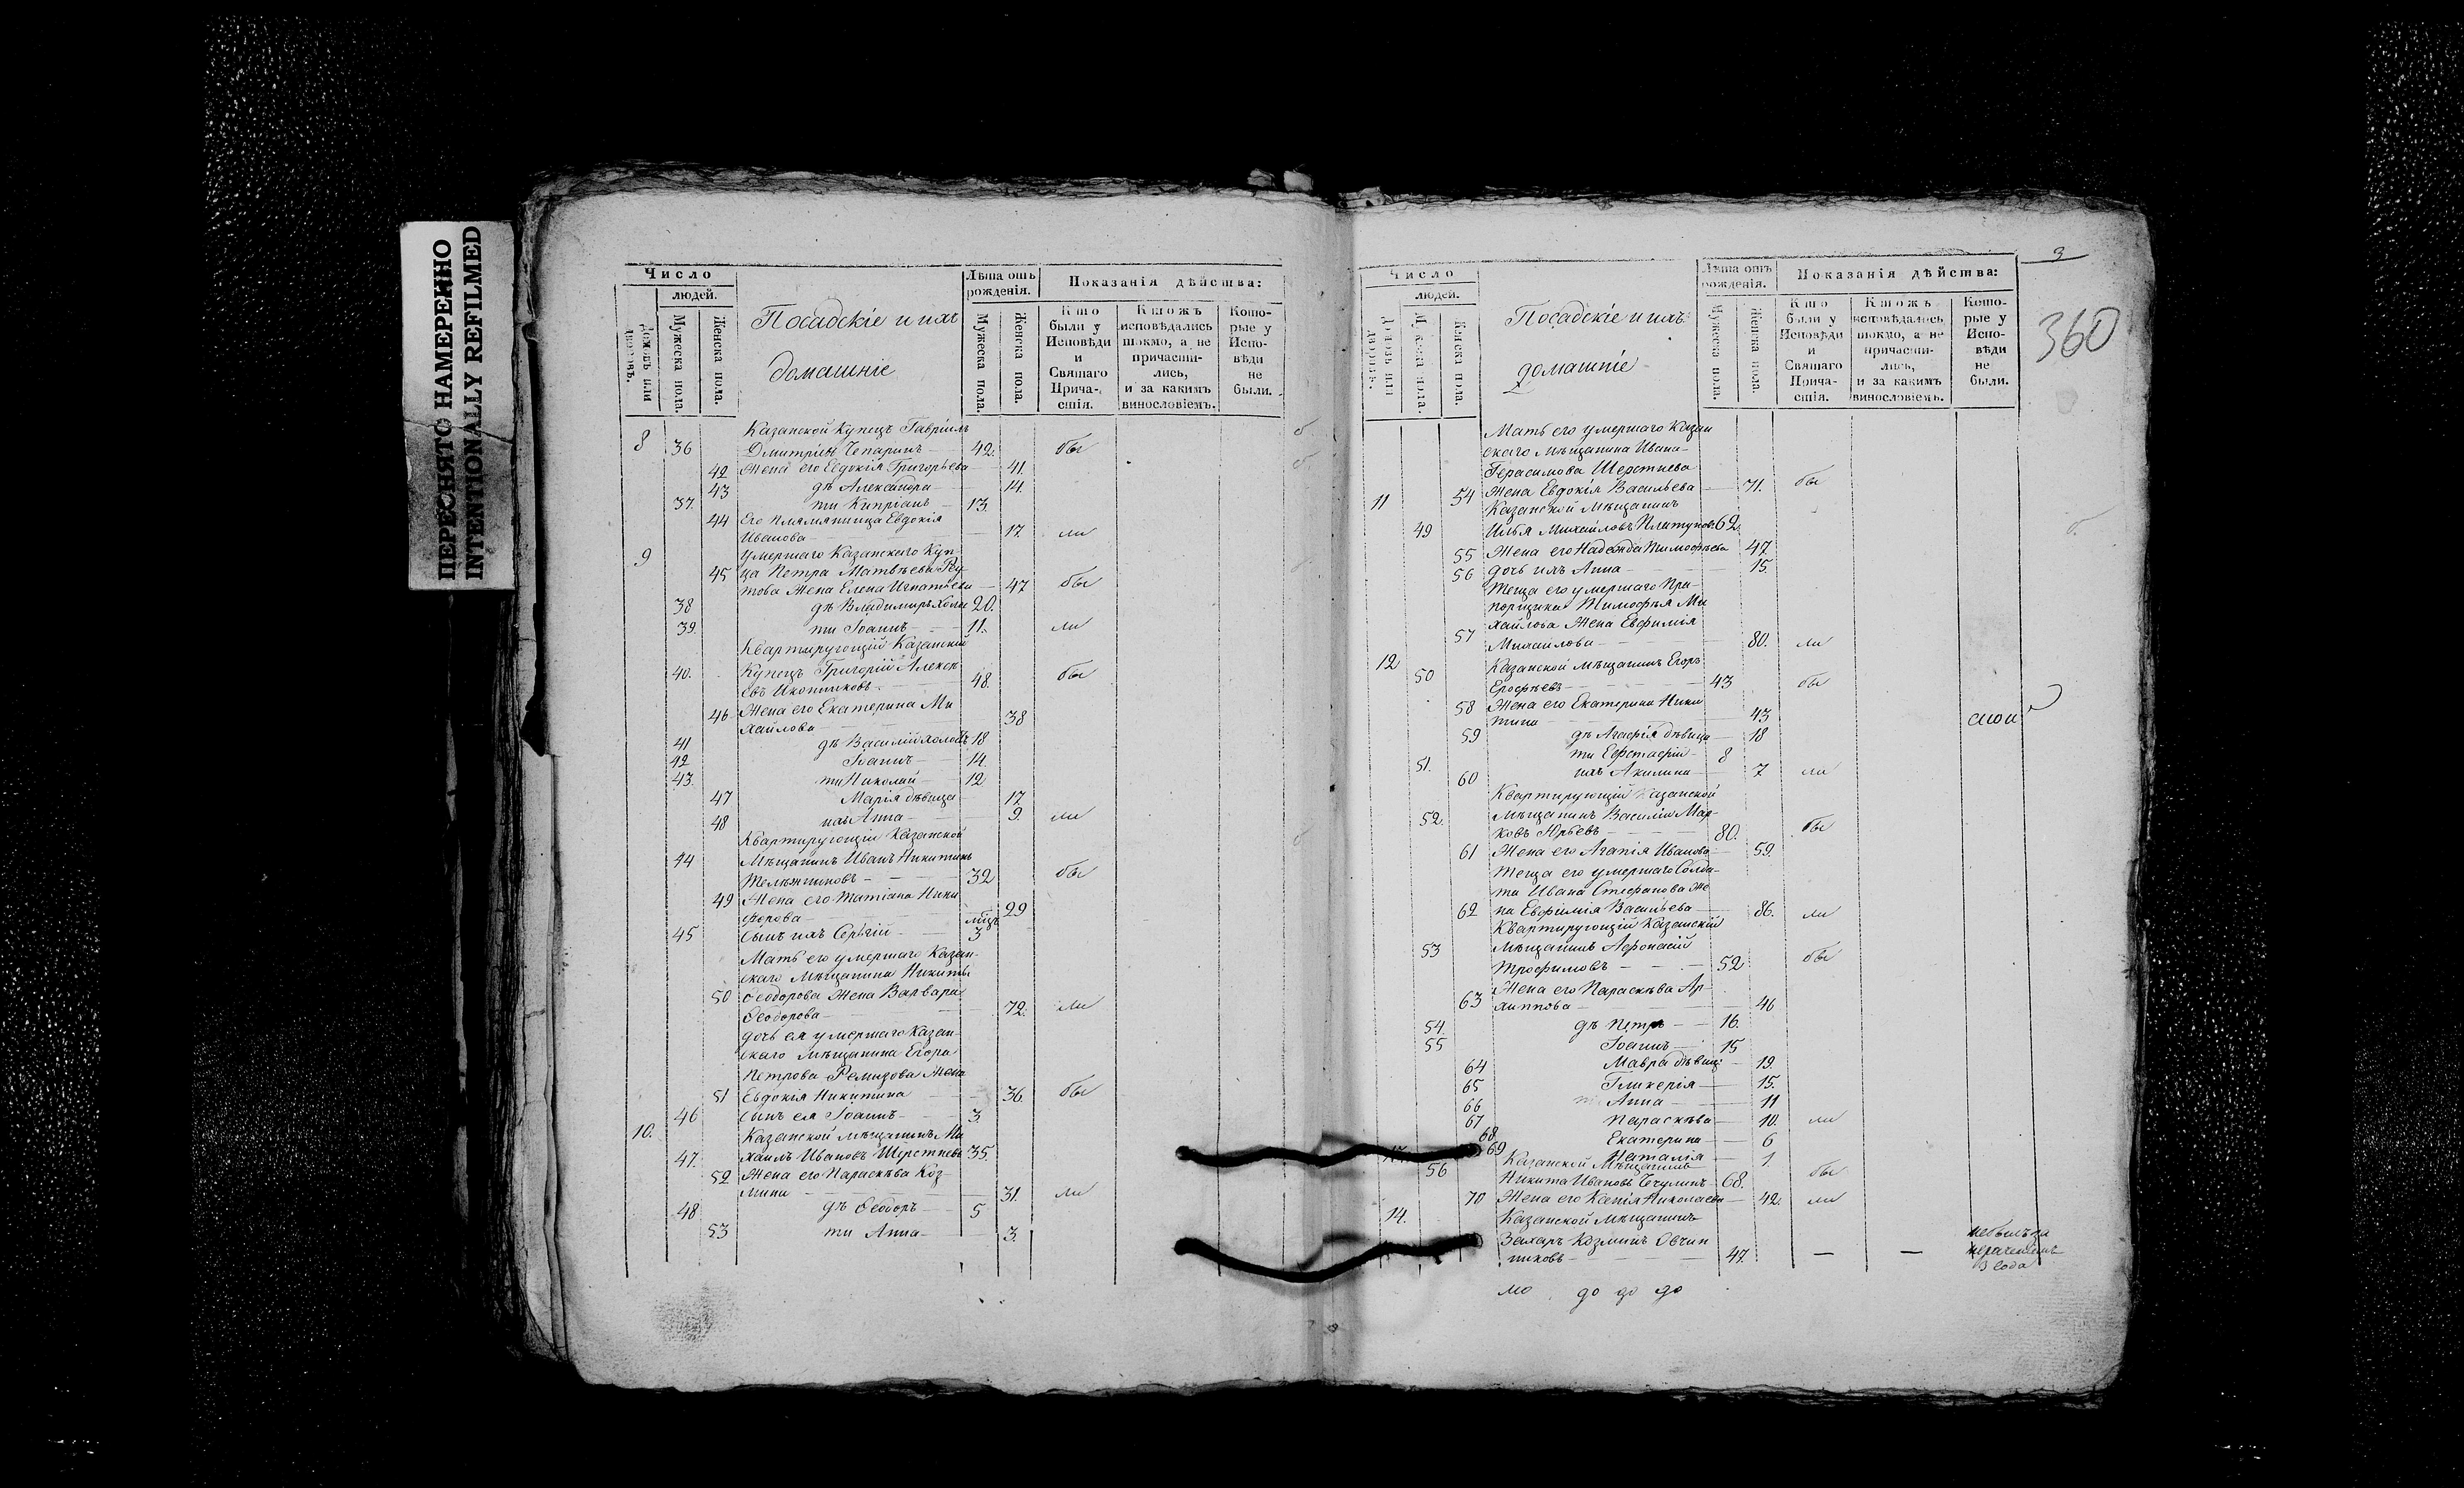 ПЕРЕСНЯТО НАМЕРЕННО
INTENTIONALLY REFILMED
Число
людей.
Домовъ или дворовъ.
Мужеска пола.
Женска пола.
Посадскіе и ихъ
домашніе
Лѣта отъ рожденія.
Мужеска пола.
Женска пола.
Показанія дѣйства:
Кто были у Исповѣди и Святаго Прича-стія.
Ктожъ исповѣдались токмо, а не причасти-лись, и за какимъ винословіемъ.
Кото-рые у Испо-вѣди не были.
Казанской Купецъ Гавріилъ
8 36 Дмитріевъ 42. бы
42 Жена его Евдокія Григорьева 41.
43 дѣ Александра 14.
37. ти Кипріанъ 13.
44 Его племянница Евдокія
Иванова 17. ли
9 умершаго Казанскаго Куп-
45 ца Петра Матвѣева
Жена Елена Игнатьева 47 бы
38 дѣ Владимиръ холос 20.
39. ти Іоаннъ 11. ли
Квартирующій Казанскій
40. Купецъ Григорій Алексѣ
евъ Иконниковъ 48. бы
46 Жена его Екатерина Ми
хайлова 38
41 дѣ Василій холос 18
42 Іоаннъ 14.
43. ти Николай 12
47 Марія дѣвица 17
48 ихъ Анна 9. ли
Квартирующій Казанской
44 Мѣщанинъ Иванъ Никитинъ
32 бы
49 Жена его Татіана Ники
форова 29
мѣсц
45 Сынъ ихъ Сергій 3
Мать его умершаго Казан-
скаго Мѣщанина Никиты
50 Ѳеодорова Жена Варвара
Ѳеодорова 72. ли
дочь ея умершаго Казан-
скаго Мѣщанина Егора
Петрова Ремизова Жена
51 Евдокія Никитина 36 бы
46 Сынъ ея Іоаннъ 3.
10. Казанской мѣщанинъ Ми
47. хаилъ Ивановъ Шерстневъ 35.
52 Жена его Параскѣва Коз
мина 31. ли
48 дѣ Ѳеодоръ 5
53 ти Анна 3.
3
360
Число
людей.
Домовъ или дворовъ.
Мужеска пола.
Женска пола.
Посадскіе и ихъ
домашніе
Лѣта отъ рожденія.
Мужеска пола.
Женска пола.
Показанія дѣйства:
Кто были у Исповѣди и Святаго Прича-стія.
Ктожъ исповѣдались токмо, а не причасти-лись, и за какимъ винословіемъ.
Кото-рые у Испо-вѣди не были.
Мать его умершаго Казан
скаго Мѣщанина Ивана
Герасимова Шерстнева
54 Жена Евдокія Васильева 71. бы
11 Казанской Мѣщанинъ
49 Илья Михайловъ Платуновъ 62.
55 Жена его Надежда Тимофѣева 47.
56 дочь ихъ Анна 15.
Теща его умершаго Пра-
порщика Тимофѣя Ми
хайлова Жена Евфимія
57 Михайлова 80. ли
12 Казанской мѣщанинъ Егоръ
50 Ерофѣевъ 43 бы
58 Жена его Екатерина Ники
тина 43
59 дѣ Агафія дѣвица 18
51. ти Евстафій 8
60 ихъ Акилина 7 ли
Квартирующій Казанской
52. Мѣщанинъ Василій Мар-
ковъ Юрьевъ 80. бы
61 Жена его Агапія Иванова 59.
Теща его умершаго Солда-
та Ивана Стефанова Же
62 на Евфимія Васильева 86. ли
Квартирующій Казанскій
53 Мѣщанинъ Афонасій
Трофимовъ 52 бы
Жена его Параскѣва Ар-
63 хиппова 46
54. дѣ Петръ 16.
55 Іоаннъ 15
64 Мавра дѣвиц 19.
65 Гликерія 15.
66 Анна 11
67 Параскѣва 10. ли
68 Екатерина 6
69 Наталія 1.
Казанской Мѣщанинъ
56 Никита Ивановъ 68. бы
70 Жена его Ксенія Николаева 42. ли
14. Казанской Мѣщанинъ
Захаръ Козминъ Овчин
никовъ 47. — — небылъ за
нераченіемъ
3 года
до до до